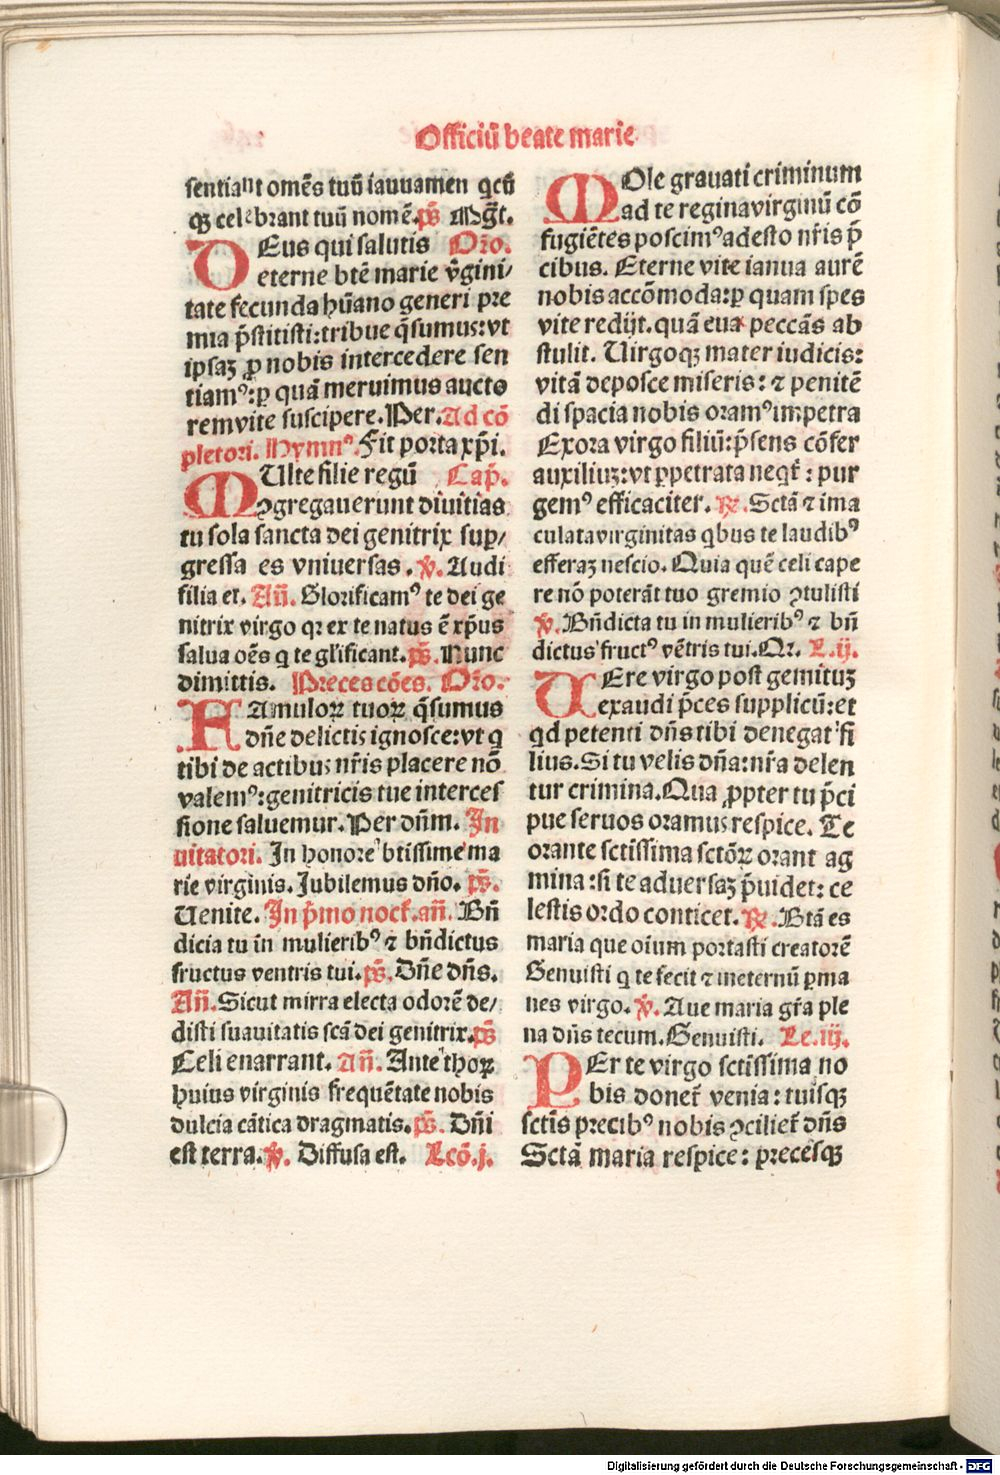 Officiū beate marie
sentiant omēs tuū iauuamen qcū
qꝫ celebrant tuū nomē. ps̄ Mgt̄.
DEus qui salutis Oro.
eterne btē marie v̄gini/
tate fecunda hūano generi pre
mia p̄stitisti: tribue q̄sumus: vt
ipsaꝫ ꝓ nobis intercedere sen
tiamꝰ: ꝑ quā meruimus aucto
rem vite suscipere. Per. Ad cō
pletori. Hymnꝰ. Fit porta xp̄i.
MUlte filie regū Cap̄.
ꝯgregauerunt diuitias
tu sola sancta dei genitrix suꝑ/
gressa es vniuersas. v̄. Audi
filia et. An̄. Glorificamꝰ te dei ge
nitrix virgo qꝛ ex te natus ē xp̄us
salua oēs q te gl'ificant. ps̄. Nunc
dimittis. Preces cōes. Oro.
FAmuloꝝ tuoꝝ q̄sumus
dn̄e delictis ignosce: vt q
tibi de actibus nr̄is placere nō
valemꝰ: genitricis tue interces
sione saluemur. Per dn̄m. In
uitatori. In honore btissime ma
rie virginis. Jubilemus dn̄o. ps̄.
Uenite. In p̄mo noct̄. an̄. Bn̄
dicta tu in mulieribꝰ ⁊ bn̄dictus
fructus ventris tui. ps̄. Dn̄e dn̄s.
An̄. Sicut mirra electa odorē de/
disti suauitatis scā dei genitrix. ps̄
Celi enarrant. An̄. Ante thoꝝ
huius virginis frequētate nobis
dulcia cātica dragmatis. ps̄. Dn̄i
est terra. v̄. Diffusa est. Lcō. j.
MOle grauati criminum
ad te regina virginū cō
fugiētes poscimꝰ adesto nr̄is p̄
cibus. Eterne vite ianua aurē
nobis accōmoda: ꝑ quam spes
vite redijt. quā eua peccās ab
stulit. Uirgo qꝫ mater iudicis:
vitā deposce miseris: ⁊ penitē
di spacia nobis oramꝰ impetra
Exora virgo filiū: p̄sens cōfer
auxiliuꝫ: vt ꝑpetrata neqt̄: pur
gemꝰ efficaciter. ℟. Sctā ⁊ ima
culata virginitas qbus te laudibꝰ
efferaꝫ nescio. Quia quē celi cape
re nō poterāt tuo gremio ꝯtulisti
v̄. Bn̄dicta tu in mulieribꝰ ⁊ bn̄
dictus fructꝰ vētris tui. Qꝛ. L. ij.
UEre virgo post gemituꝫ
exaudi p̄ces supplicū: et
qd petenti dn̄s tibi denegat fi
lius. Si tu velis dn̄a: nr̄a delen
tur crimina. Qua ꝓpter tu p̄ci
pue seruos oramus respice. Te
orante sctissima sctōꝝ orant ag
mina: si te aduersaꝫ p̄uidet: ce
lestis ordo conticet. ℟. Btā es
maria que oīum portasti creatorē
Genuisti q te fecit ⁊ ineternū ꝑma
nes virgo. v̄. Aue maria gr̄a ple
na dn̄s tecum. Genuisti. Le. iij.
PEr te virgo sctissima no
bis donet̄ venia: tuisqꝫ
sctīs precibꝰ nobis ꝯciliet̄ dn̄s
Sctā maria respice: precesqꝫ
Digitalisierung gefördert durch die Deutsche Forschungsgemeinschaft - DFG